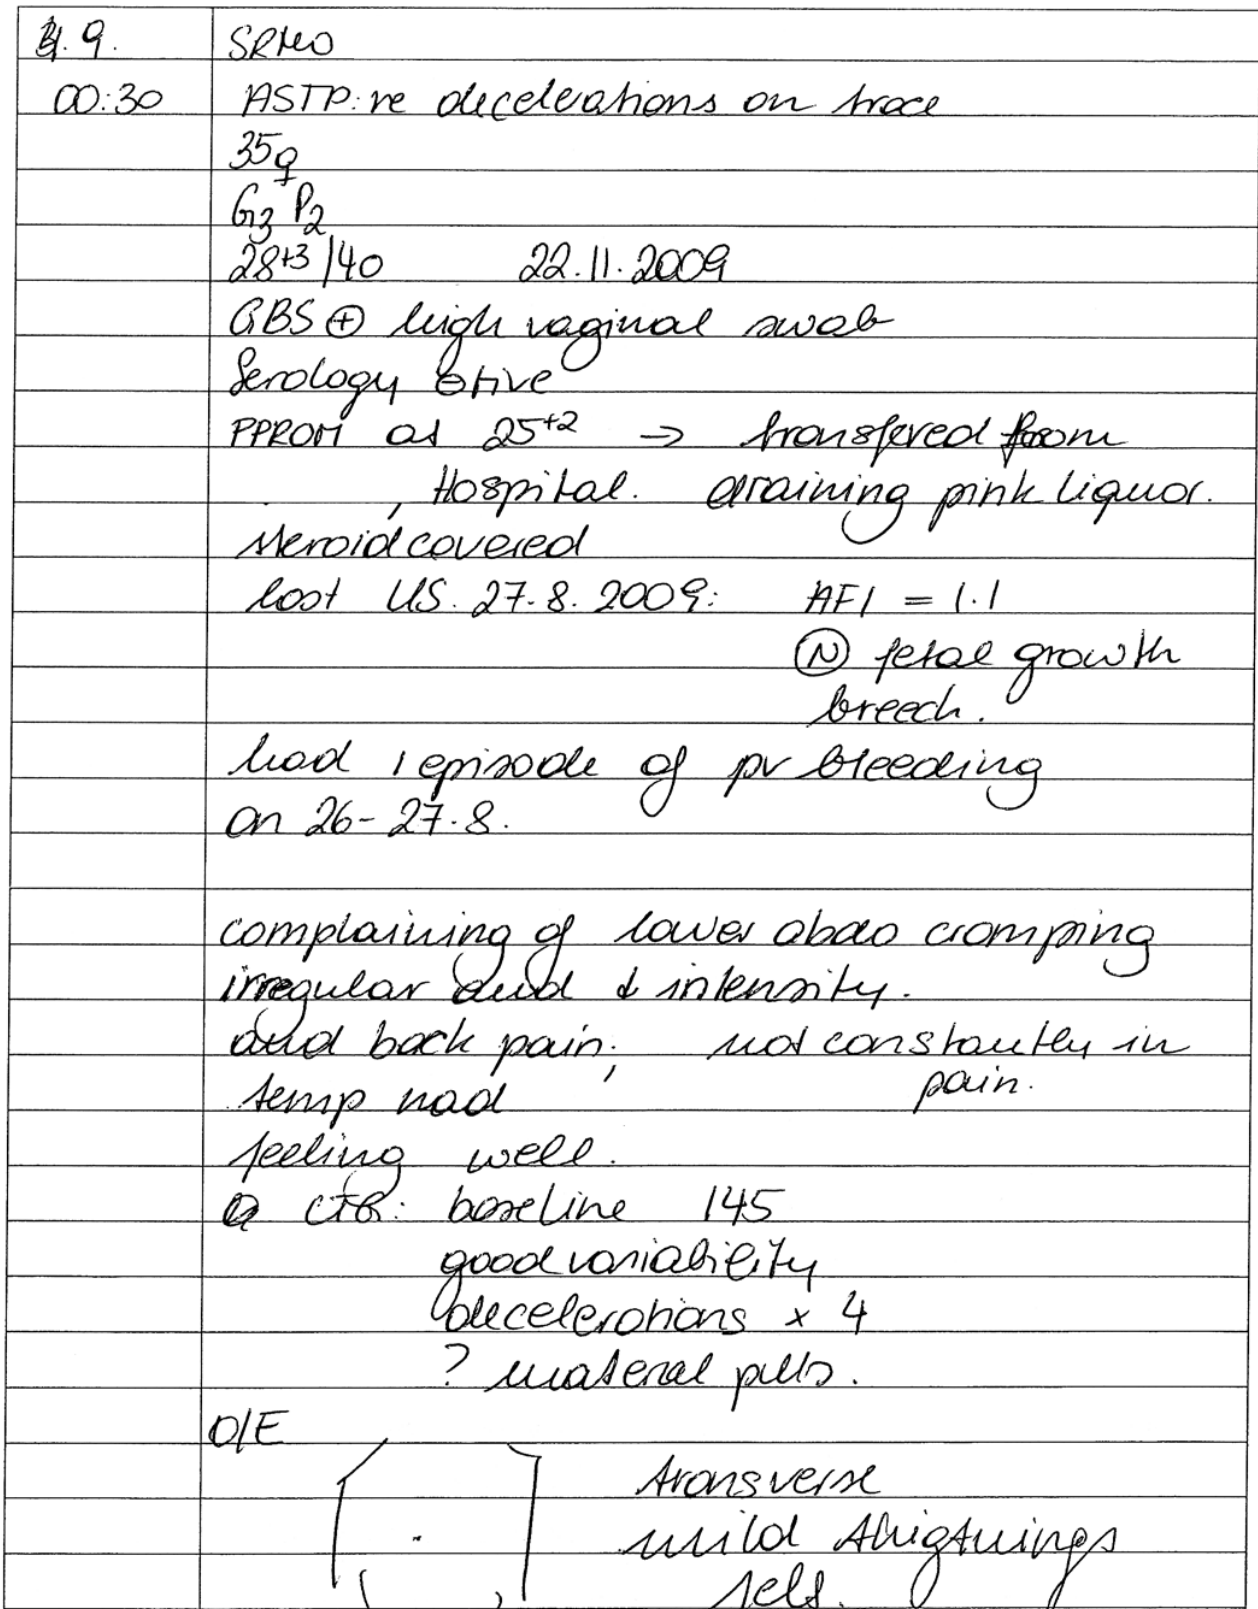 4.9. SRMO
00:30 ASTP: re decelerations on trace
35♀
G3 P2
28+3/40 22.11.2009
GBS ⊕ high vaginal swab
Serology ⊖tive
PPROM at 25+2 → transfered from
, Hospital. draining pink liquor.
steroid covered
last US. 27.8.2009: AFI = 1.1
Ⓝ fetal growth
breech.
had 1 episode of pv bleeding
on 26-27.8.
complaining of lower abdo cramping
irregular and ↓ intensity.
and back pain; not constantly in
pain.
temp nad
feeling well.
CTG: baseline 145
good variability
decelerations x 4
? materal puls.
O/E
transverse
mild thigtnings
felt.